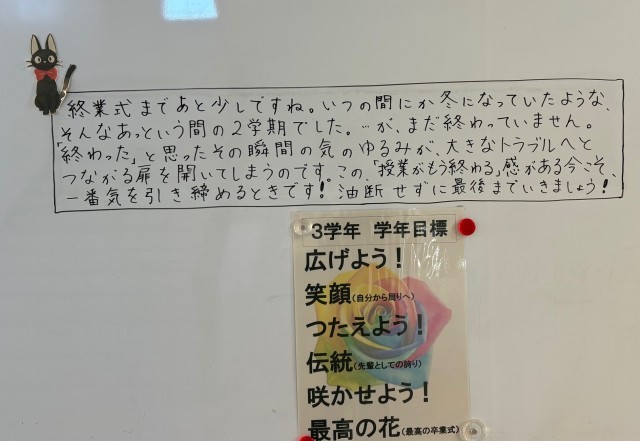 終業式まであと少しですね。いつの間にか冬になっていたような、
そんなあっという間の2学期でした。…が、まだ終わっていません。
「終わった」と思ったその瞬間の気のゆるみが、大きなトラブルへと
つながる扉を開いてしまうのです。この、「授業がもう終わる」感がある今こそ、
一番気を引き締めるときです!油断せずに最後までいきましょう!
3学年 学年目標
広げよう!
笑顔(自分から周りへ)
つたえよう!
伝統(先輩としての誇り)
咲かせよう!
最高の花(最高の卒業式)